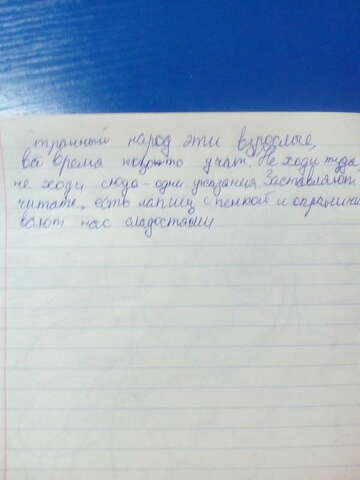 транный народ эти взрослые,
всё время кого-то учат. Не ходи туда
не ходи сюда - одни указания. Заставляют
читать, есть лапшу с пенкой и ограничи
вают нас сладостями